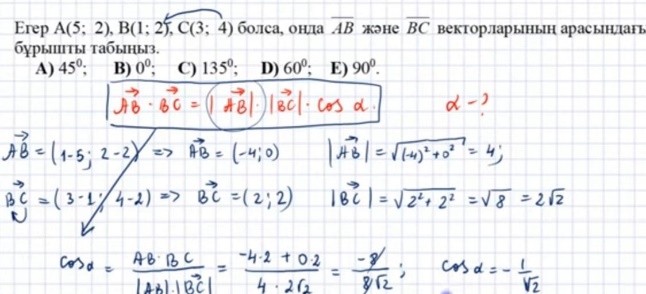 Егер A(5; 2), B(1; 2), C(3; 4) болса, онда AB және BC векторларының арасындағы
бұрышты табыңыз.
A) 45⁰; B) 0⁰; C) 135⁰; D) 60⁰; E) 90⁰.
AB · BC = |AB| · |BC| · cos α. α - ?
AB = (1-5; 2-2) => AB = (-4; 0) |AB| = √(-4)² + 0² = 4;
BC = (3-1; 4-2) => BC = (2; 2) |BC| = √2² + 2² = √8 = 2√2
cos α = AB · BC / |AB| · |BC| = -4·2 + 0·2 / 4 · 2√2 = -8 / 8√2 ; cos α = - 1/√2